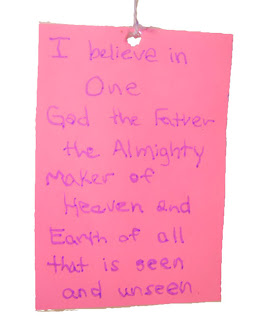 I believe in
One
God the Father
the Almighty
Maker of
Heaven and
Earth of all
that is seen
and unseen.